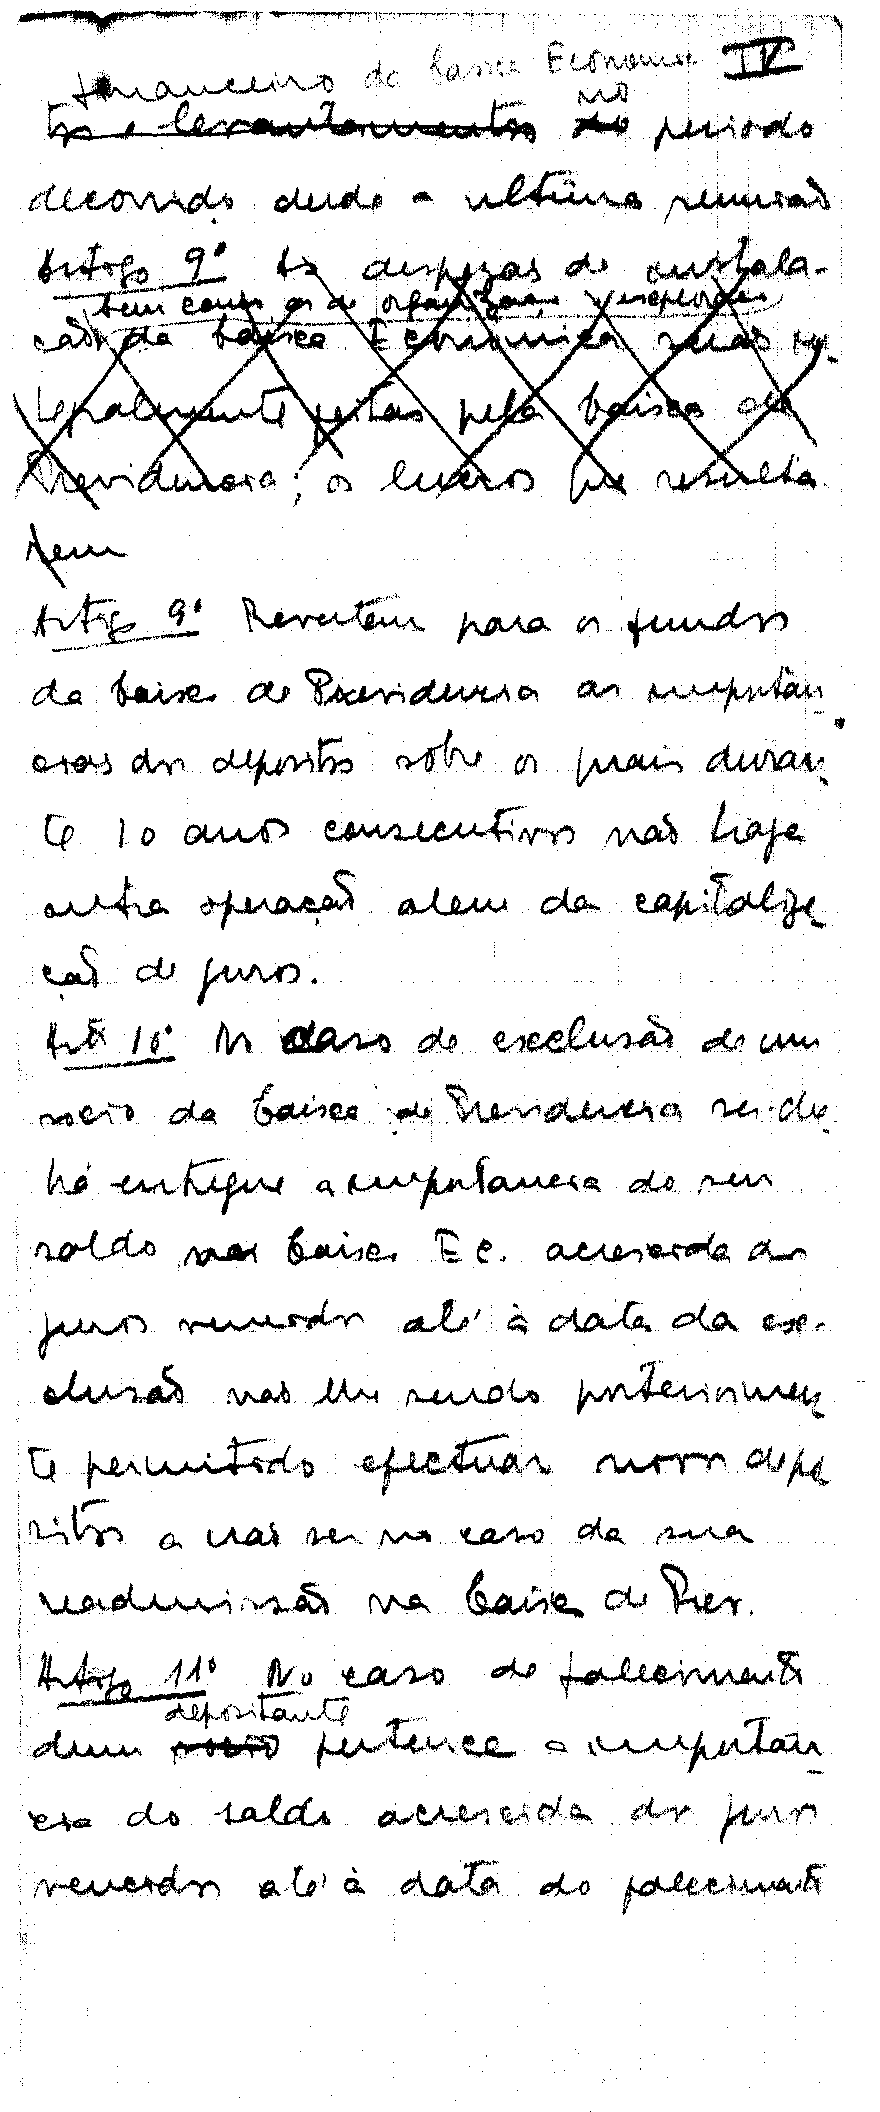 financeiro da Caixa Economica IV
no
tos e levantamentos do periodo
decorrido desde a ultima reunião
Artigo 9º As despezas de instala-
bem como as de organização e exploração
ção da Caixa Economica serão in-
tegralmente feitas pela Caixa de
Previdencia; os lucros que resulta
rem
Artigo 9º Revertem para os fundos
da Caixa de Previdencia as importân
cias dos depositos sobre os quais duran
te 10 anos consecutivos não haja
outra operação alem da capitaliza
ção de juros.
Artº 10º No caso de exclusão de um
socio da Caixa de Previdencia ser-lhe
há entregue a importancia do seu
saldo na Caixa Ec. acrescida dos
juros vencidos até à data da ex-
clusão não lhe sendo posteriormen
te permitido efectuar novos depó
sitos a não ser no caso da sua
readmissão na Caixa de Prev.
Artigo 11º No caso de falecimento
depositante
dum socio pertence a importân
cia do saldo acrescida dos juros
vencidos até à data do falecimento